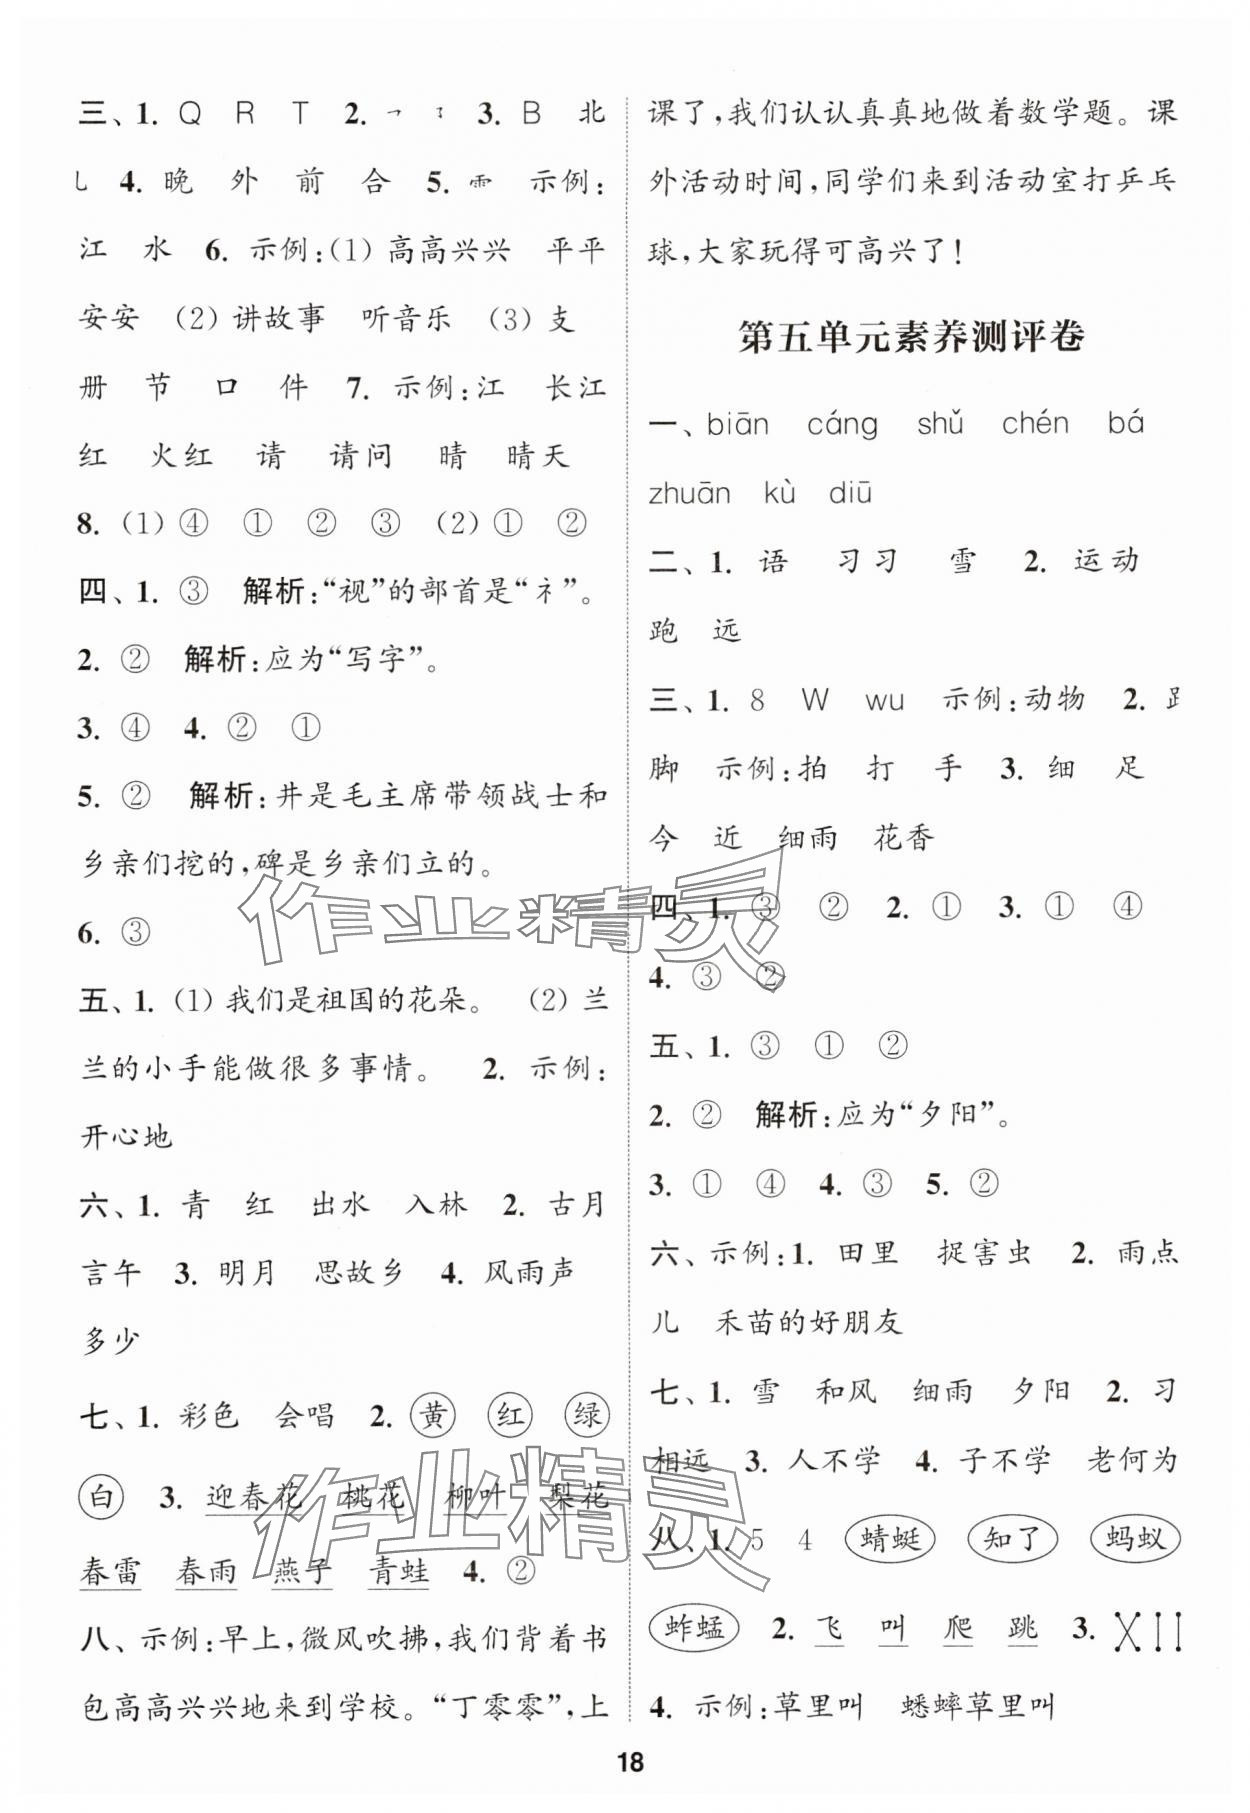 三、1. Q R T 2. 3. B 北
4. 晚 外 前 合 5. 示例:
江 水 6. 示例:(1)高高兴兴 平平
安安 (2)讲故事 听音乐 (3)支
册 节 口 件 7. 示例:江 长江
红 火红 请 请问 晴 晴天
8. (1)④ ① ② ③ (2)① ②
四、1. ③ 解析:“视”的部首是“礻”。
2. ② 解析:应为“写字”。
3. ④ 4. ② ①
5. ② 解析:井是毛主席带领战士和
乡亲们挖的,碑是乡亲们立的。
6. ③
五、1. (1)我们是祖国的花朵。 (2)兰
兰的小手能做很多事情。 2. 示例:
开心地
六、1. 青 红 出水 入林 2. 古月
言午 3. 明月 思故乡 4. 风雨声
多少
七、1. 彩色 会唱 2. 黄 红 绿
白 3. 迎春花 桃花 柳叶 梨花
春雷 春雨 燕子 青蛙 4. ②
八、示例:早上,微风吹拂,我们背着书
包高高兴兴地来到学校。“丁零零”,上
课了,我们认认真真地做着数学题。课
外活动时间,同学们来到活动室打乒乓
球,大家玩得可高兴了!
第五单元素养测评卷
一、biān cáng shǔ chén bá
zhuān kù diū
二、1. 语 习习 雪 2. 运动
跑 远
三、1. 8 W wu 示例:动物 2. 𧾷
脚 示例:拍 打 手 3. 细 足
今 近 细雨 花香
四、1. ③ ② 2. ① 3. ① ④
4. ③ ②
五、1. ③ ① ②
2. ② 解析:应为“夕阳”。
3. ① ④ 4. ③ 5. ②
六、示例:1. 田里 捉害虫 2. 雨点
儿 禾苗的好朋友
七、1. 雪 和风 细雨 夕阳 2. 习
相远 3. 人不学 4. 子不学 老何为
八、1. 5 4 蜻蜓 知了 蚂蚁
蚱蜢 2. 飞 叫 爬 跳 3.
4. 示例:草里叫 蟋蟀草里叫
18
作业精灵
作业精灵